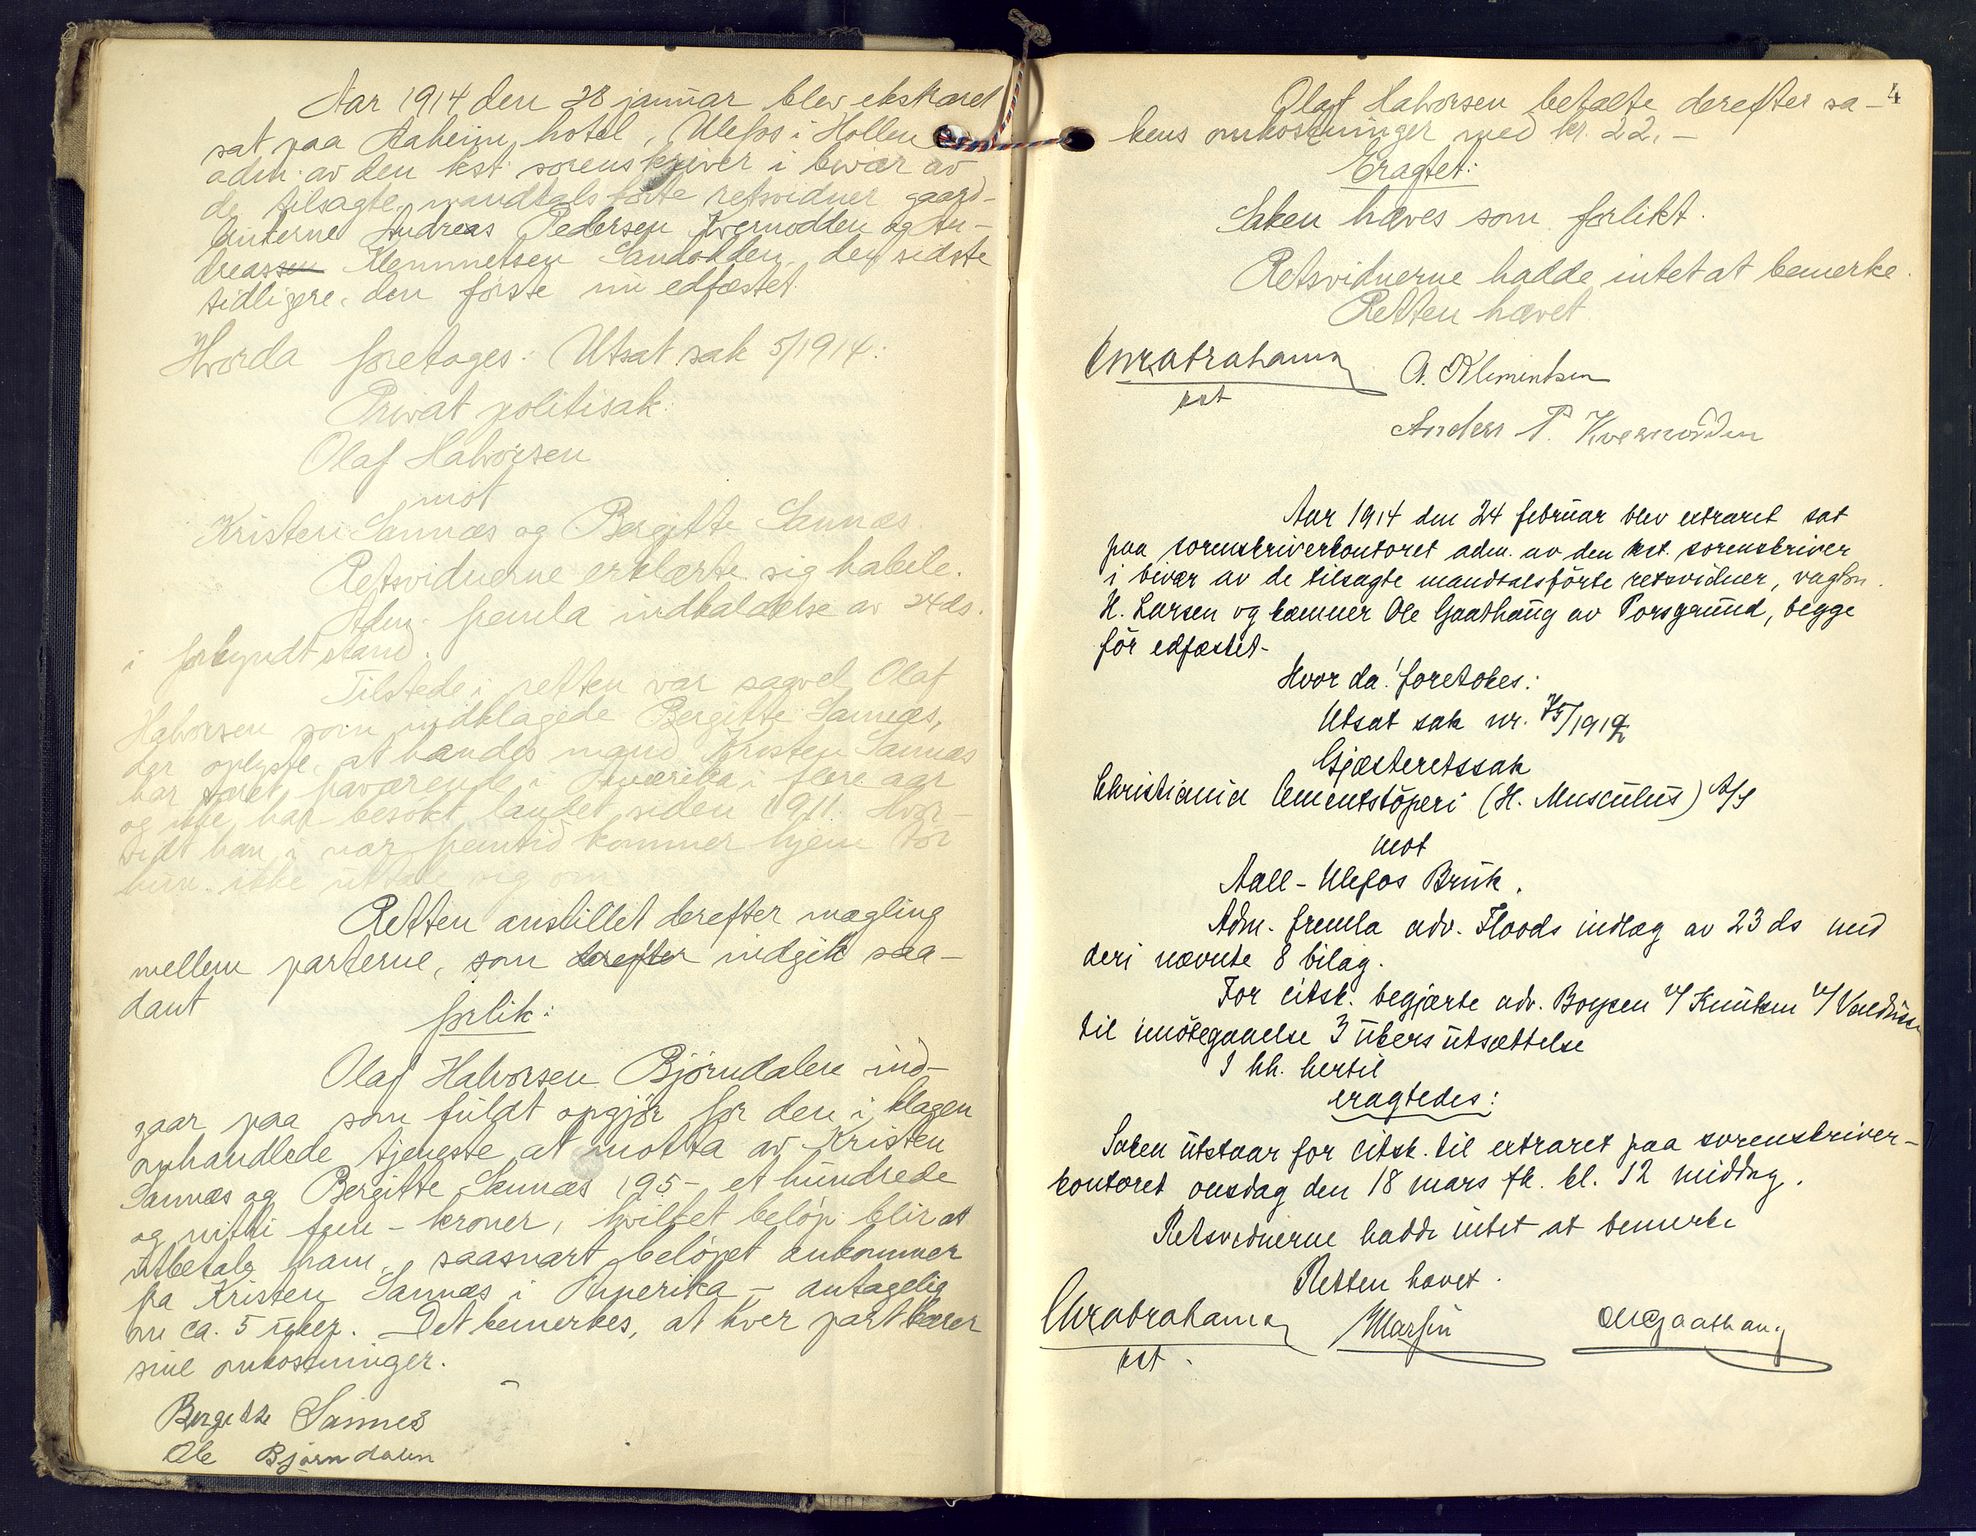 Aar 1914 den 28 januar blev ekstraret
sat paa Aaheim hotel, Ulefos i Hollen
adm. av den kst. sorenskriver i bivær av
de tilsagte mandtalsførte retsvidner gaard-
bruterne Andreas Pedersen Kvernodden og An-
dreassen Klemmetsen Sandodden, den sidste
tidligere, den første nu edfæstet.
Hvorda foretages: Utsat sak 5/1914:
Privat politisak:
Olaf Halvorsen
mot
Kristen Sannæs og Bergitte Sannæs.
Retsvidnerne erklærte sig habile.
Adm. fremla indkaldelse av 24 ds.
i forkyndt stand.
Tilstede i retten var saavel Olaf
Halvorsen som indklagede Bergitte Sannæs,
der oplyste, at hendes mand Kristen Sannæs
har været fraværende i Amerika i flere aar
og ikke har besøkt landet siden 1911. Hvor-
vidt han i nær fremtid kommer hjem tør
hun ikke uttale sig om.
Retten anstillet derefter mægling
mellem parterne, som derefter indgik saa-
dant
forlik:
Olaf Halvorsen Bjørndalen ind-
gaar paa som fuldt opgjør for den i klagen
omhandlede tjeneste at motta av Kristen
Sannæs og Bergitte Sannæs 195 - et hundrede
og nitti fem - kroner, hvilket beløp blir at
utbetale ham, saasnart beløpet ankommer
fra Kristen Sannæs i Amerika - antagelig
om ca. 5 uker. Det bemerkes, at hver part bærer
sine omkostninger.
Bergitte Sannes
Ole Bjørndalen
4
Olaf Halvorsen betalte derefter sa-
kens omkostninger med kr. 22,-
Eragtet:
Saken hæves som forlikt.
Retsvidnerne hadde intet at bemerke.
Retten hævet.
Chr Abrahams
kst
A. Klementsen
Anders P. Kvernodden
Aar 1914 den 24 februar blev extraret sat
paa sorenskriverkontoret adm. av den kst. sorenskriver
i bivær av de tilsagte mandtalsførte retsvidner, vagtm.
H. Larsen og kæmner Ole Gaathaug av Porsgrund, begge
før edfæstet-
Hvorda foretokes:
Utsat sak nr. 75/1912
Gjæsteretssak
Christiania Cementstøperi (H. Musculus) A/S
mot
Aall-Ulefos Bruk.
Adm. fremla adv. Floods indlæg av 23 ds med
deri nævnte 8 bilag.
For citsk. begjærte adv. Boysen v/ Knudsen v/
til imøtegaaelse 3 ukers utsættelse
I hh. hertil
eragtedes:
Saken utstaar for citsk. til extraret paa sorenskriver-
kontoret onsdag den 18 mars fk. kl. 12 middag.
Retsvidnerne hadde intet at bemerke
Retten hævet.
Chr Abrahams
kst.
H Larsen
Ole Gaathaug